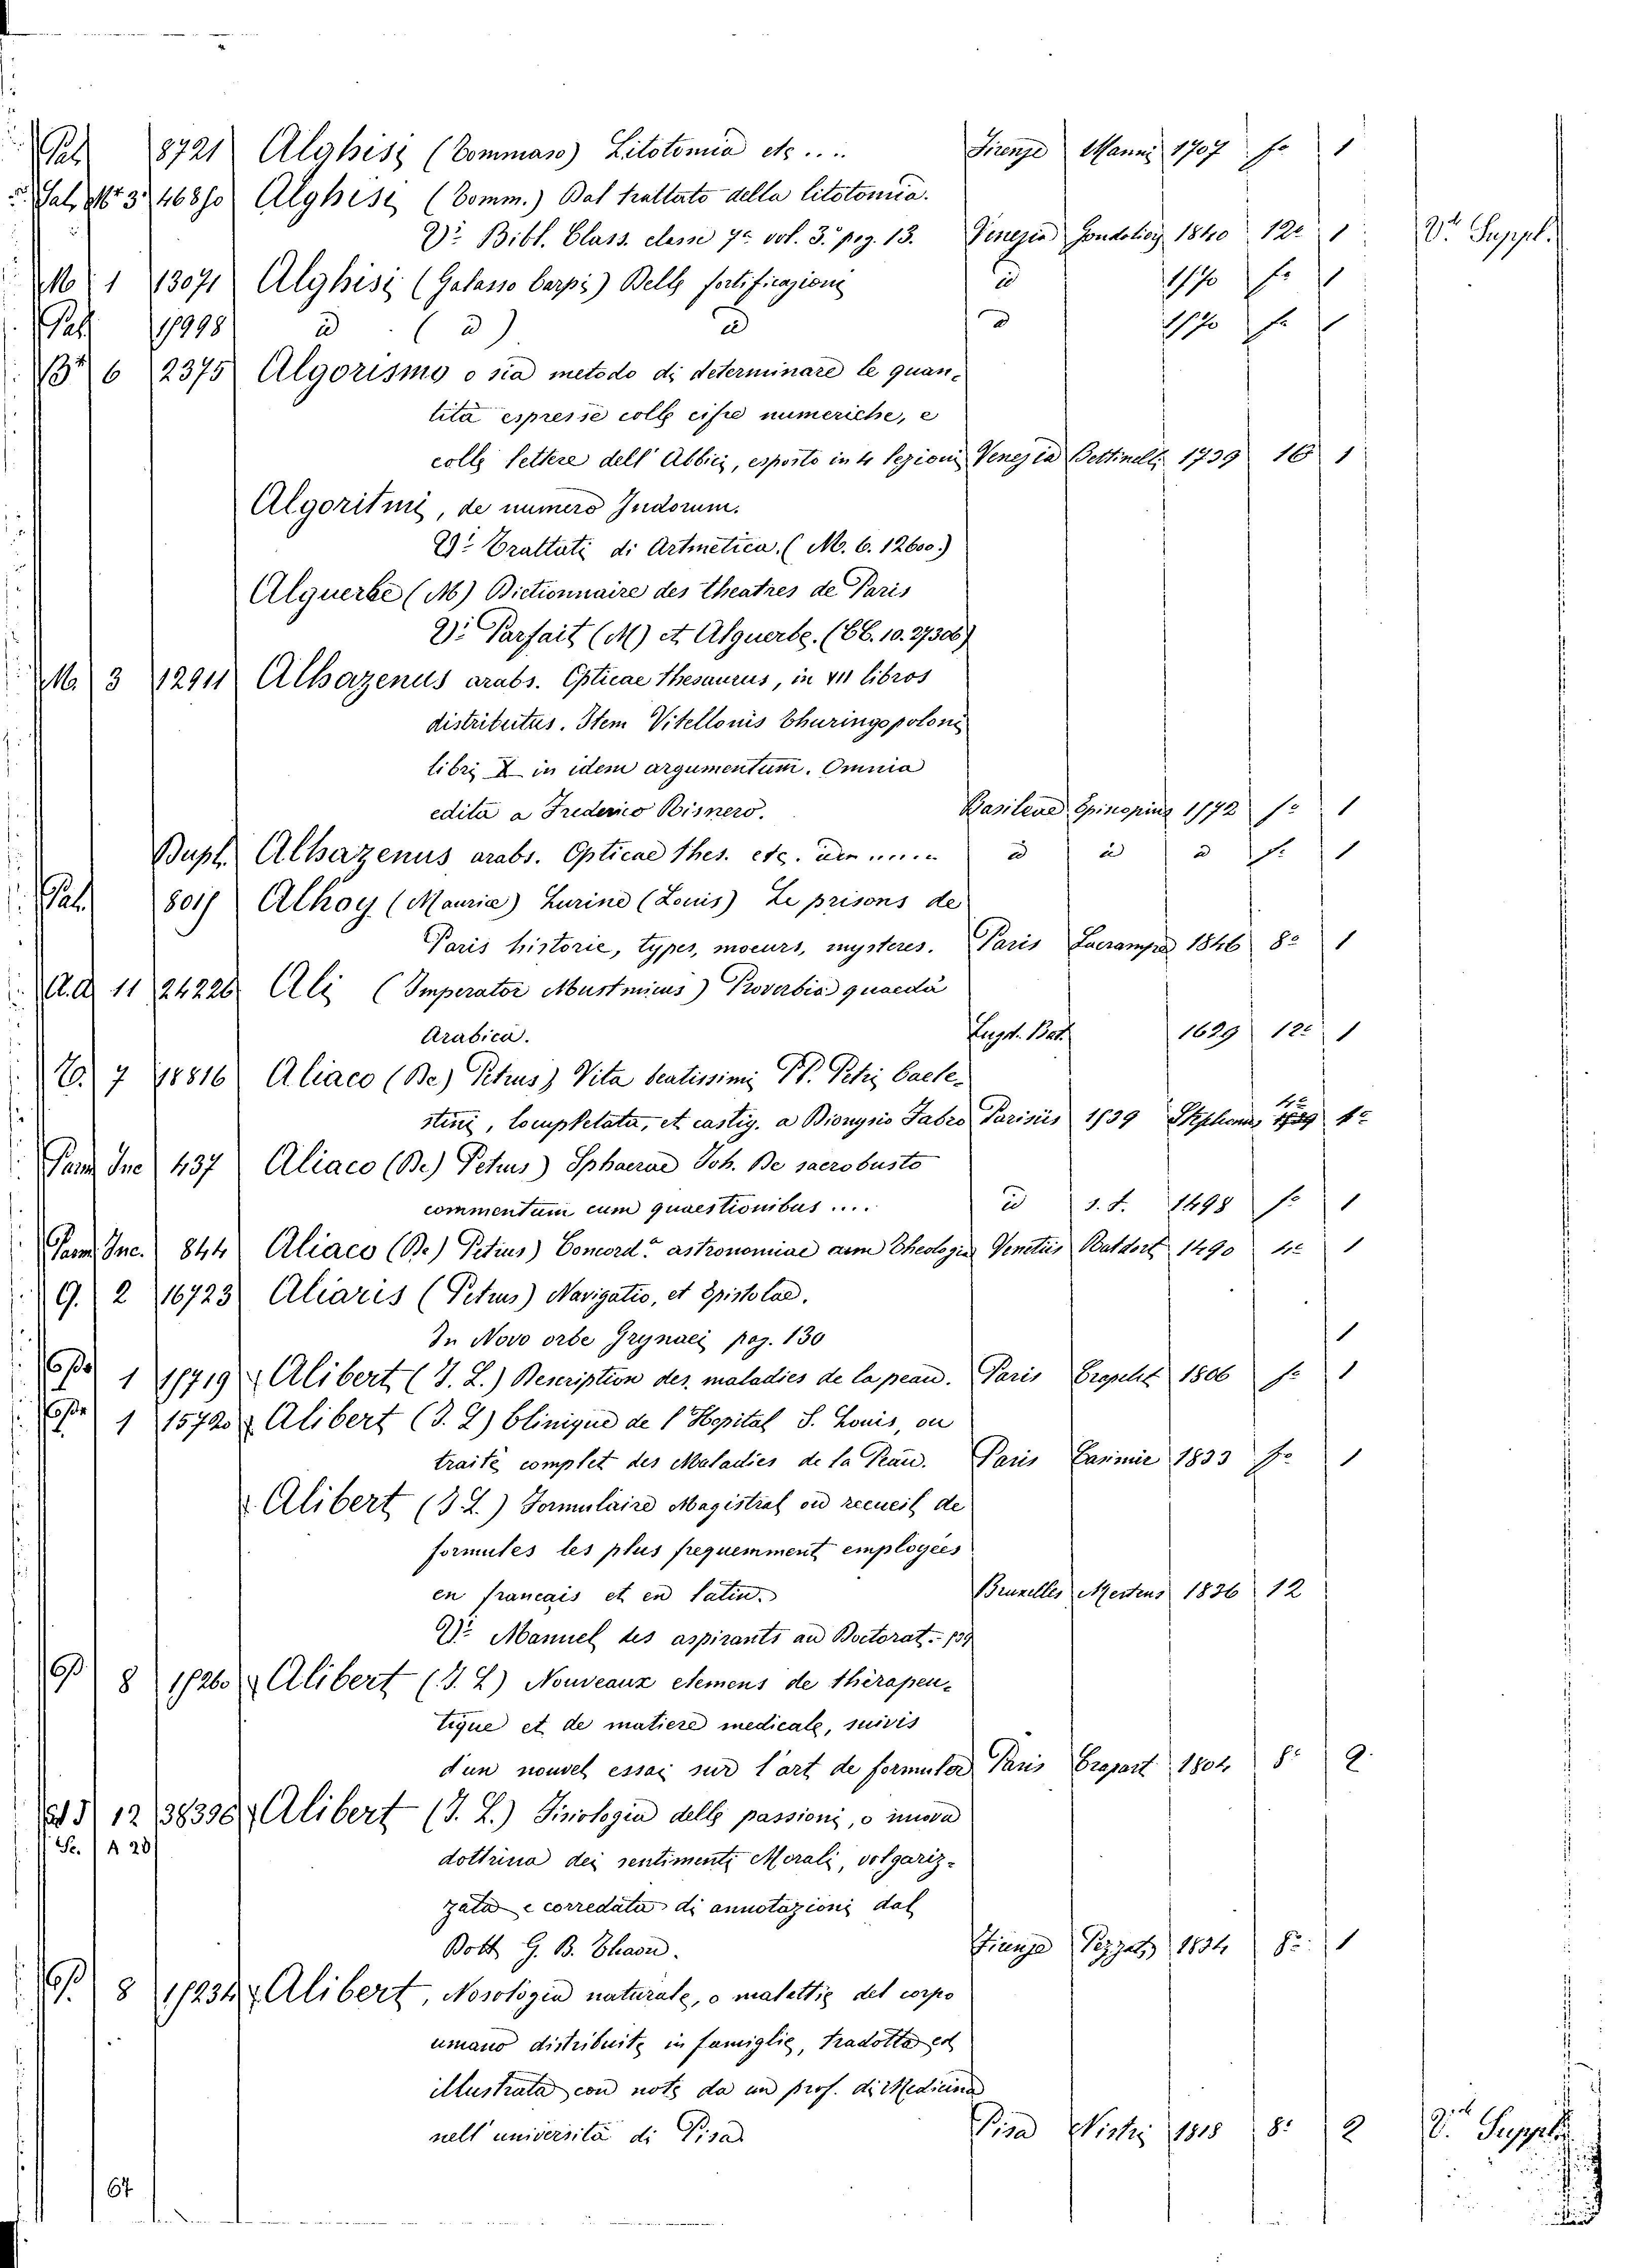 Pal. 8721 Alghisi (Tommaso) Litotomia etc.... Firenze Manni 1707 fo 1
Alghisi (Tomm.) Dal trattato della litotomia.
Vi: Bibl. Class. classe 7a vol. 3. pag. 13. Venezia 1840 12o 1 Vi Suppl.
M 1 13071 Alghisi (Galasso Carpi) Delle fortificazioni id 1570 fo 1
Pal. 15998 id (id) id id 1570 fo 1
6 2375 Algorismo o sia metodo di determinare le quan-
tità espresse colle cifre numeriche, e
colle lettere dell' Abbici, esposto in 4 lezioni Venezia Bettinelli 1739 16 1
Algoritmi, de numero Indorum.
Vi: Trattati di Artmetica. (M. 6. 12600.)
Alguerbe (M) Dictionnaire des theatres de Paris
Vi: Parfait (M) et Alguerbe. (CC. 10. 27306)
M. 3 12911 Alhazenus arabs. Opticae thesaurus, in VII libros
distributus. Item Vitellonis Thuringopoloni
libri X in idem argumentum. Omnia
edita a Frederico Risnero. Basileae Episcopius 1572 fo 1
Dupl. Alhazenus arabs. Opticae thes. etc. id id id fo 1
Pal. Alhoy (Maurice) Lurine (Louis) Le prisons de
Paris historie, types, moeurs, mysteres. Paris Lacrampe 1846 8o 1
A.A 11 24226 Ali (Imperator Mustmicus) Proverbia quaedā
Arabica. Lugd. Bat. 1629 12o 1
7 18816 Aliaco (De) Petrus) Vita beatissimi Pt. Petri Caele-
stini, locupletata, et castig. a Dionysio Fabro Parisiis 1539 4o
Parm Inc 437 Aliaco (De) Petrus) Sphaerae Joh. De sacrobusto
commentum cum quaestionibus.... id s. t. 1498 fo 1
Parm Inc. 844 Aliaco (De) Petrus) Concord.a astronomiae cum Theologia Venetiis Ratdort 1490 4o 1
G. 2 16723 Aliaris (Petrus) Navigatio, et Epistolae.
In Novo orbe Grynaei pag. 130 1
1 15719 Alibert (J. L.) Description des maladies de la peau. Paris 1806 fo 1
1 15720 Alibert (J. L) Clinique de l'Hopital S. Louis, ou
traité complet des Maladies de la Peau. Paris 1833 fo 1
Alibert (J. L.) Formulaire Magistral ou recueil de
formules les plus frequemment employées
en francais et en latin. Bruxelles Mertens 1836 12
Vi: Manuel des aspirants au Doctorat. 139
8 15260 Alibert (J. L) Nouveaux elemens de thérapeu-
tique et de matiere medicale, suivis
d'un nouvel essai sur l'art de formuler Paris Crapart 1804 8o 2
12 38396 Alibert (J. L.) Fisiologia delle passioni, o nuova
A 28 dottrina dei sentimenti Morali, volgariz-
zata e corredata di annotazioni dal
Dott G. B. Thaon. Firenze Pezzati 1834 8o 1
8 15234 Alibert, Nosologia naturale, o malattie del corpo
umano distribuite in famiglie, tradotta ed
illustrata con note da un prof. di Medicina
nell' università di Pisa Pisa Nistri 1818 8o 2 Vi Suppl.
64